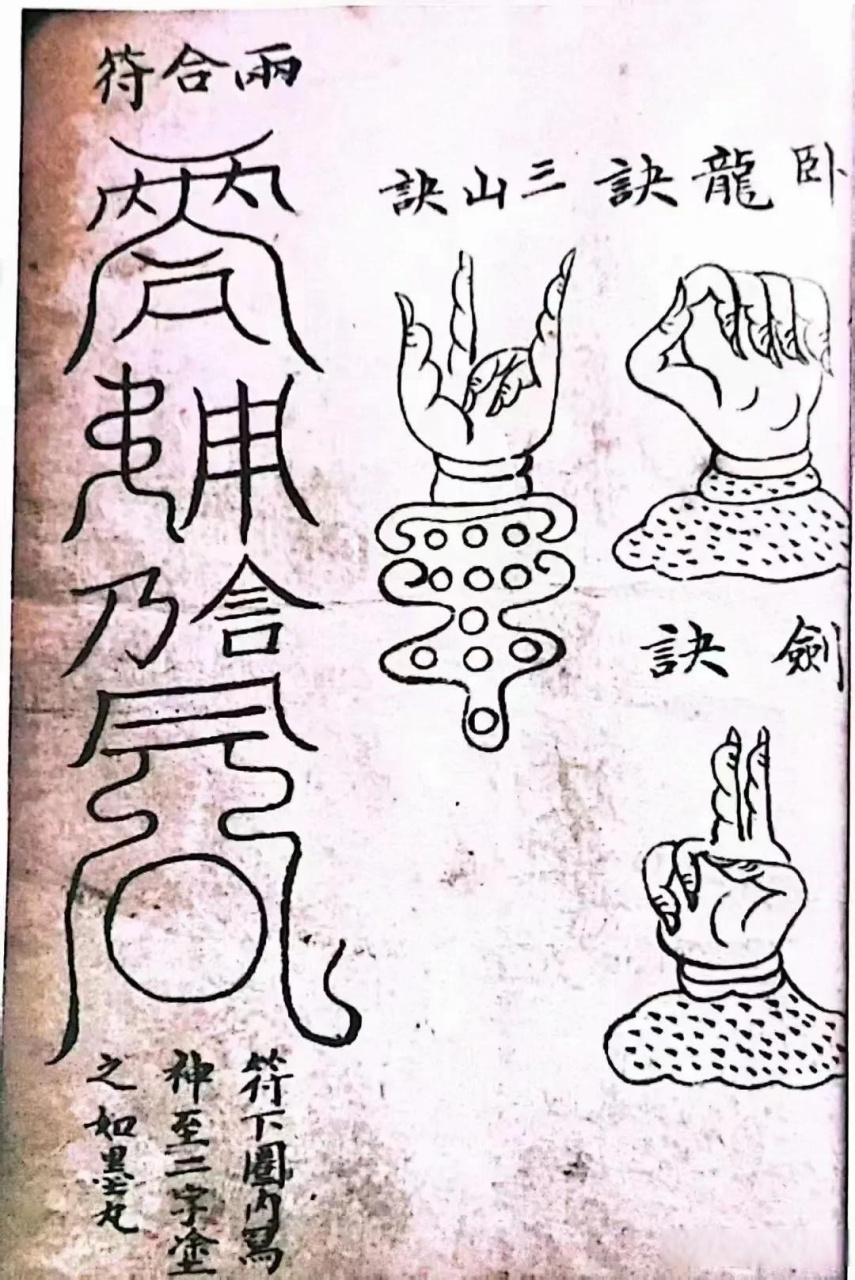 卧龍訣
劍訣
三山訣
兩合符
符下圈内寫
神至二字塗
之如墨丸